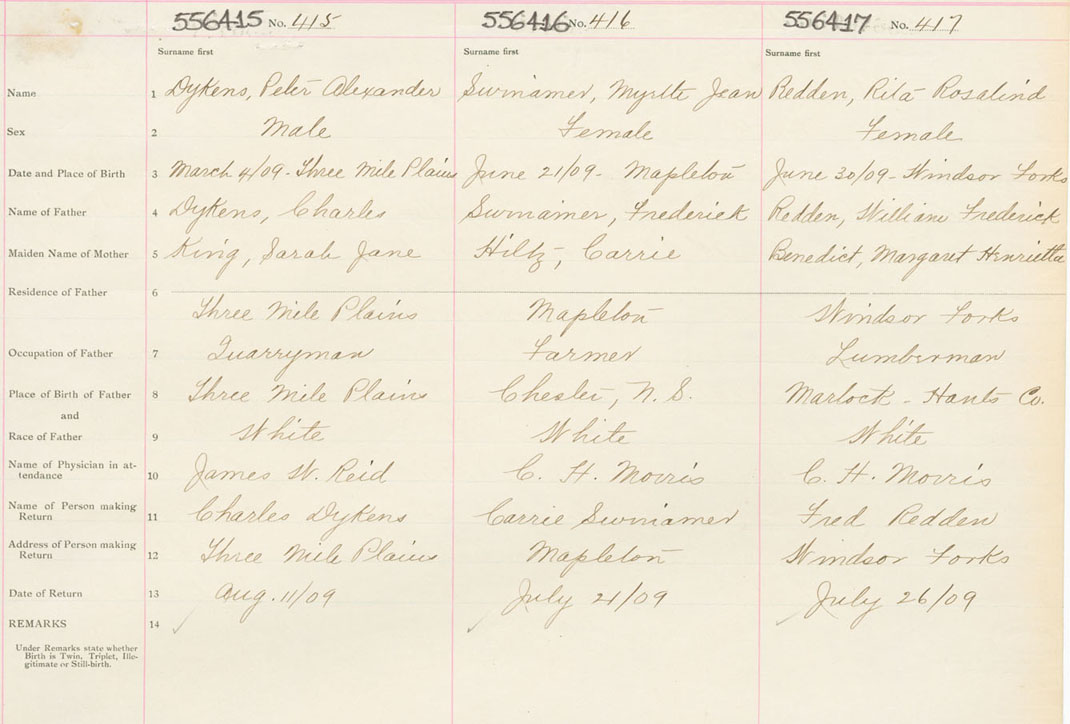 556415 No. 415 556416 No. 416 556417 No. 417
Surname first Surname first Surname first
Name 1 Dykens, Peter Alexander Swinamer, Myrtte Jean Redden, Rita Rosalind
Sex 2 Male Female Female
Date and Place of Birth 3 March 4/09 - Three Mile Plains June 21/09 - Mapleton June 30/09 - Windsor Forks
Name of Father 4 Dykens, Charles Swinamer, Frederick Redden, William Frederick
Maiden Name of Mother 5 King, Sarah Jane Hiltz, Carrie Benedict, Margaret Henrietta
Residence of Father 6
Three Mile Plains Mapleton Windsor Forks
Occupation of Father 7 Quarryman Farmer Lumberman
Place of Birth of Father 8 Three Mile Plains Chester, N. S. Martock - Hants Co.
and
Race of Father 9 White White White
Name of Physician in at-
tendance 10 James W. Reid C. H. Morris C. H. Morris
Name of Person making
Return 11 Charles Dykens Carrie Swinamer Fred Redden
Address of Person making
Return 12 Three Mile Plains Mapleton Windsor Forks
Date of Return 13 Aug. 11/09 July 21/09 July 26/09
REMARKS 14
Under Remarks state whether
Birth is Twin, Triplet, Ille-
gitimate or Still-birth.